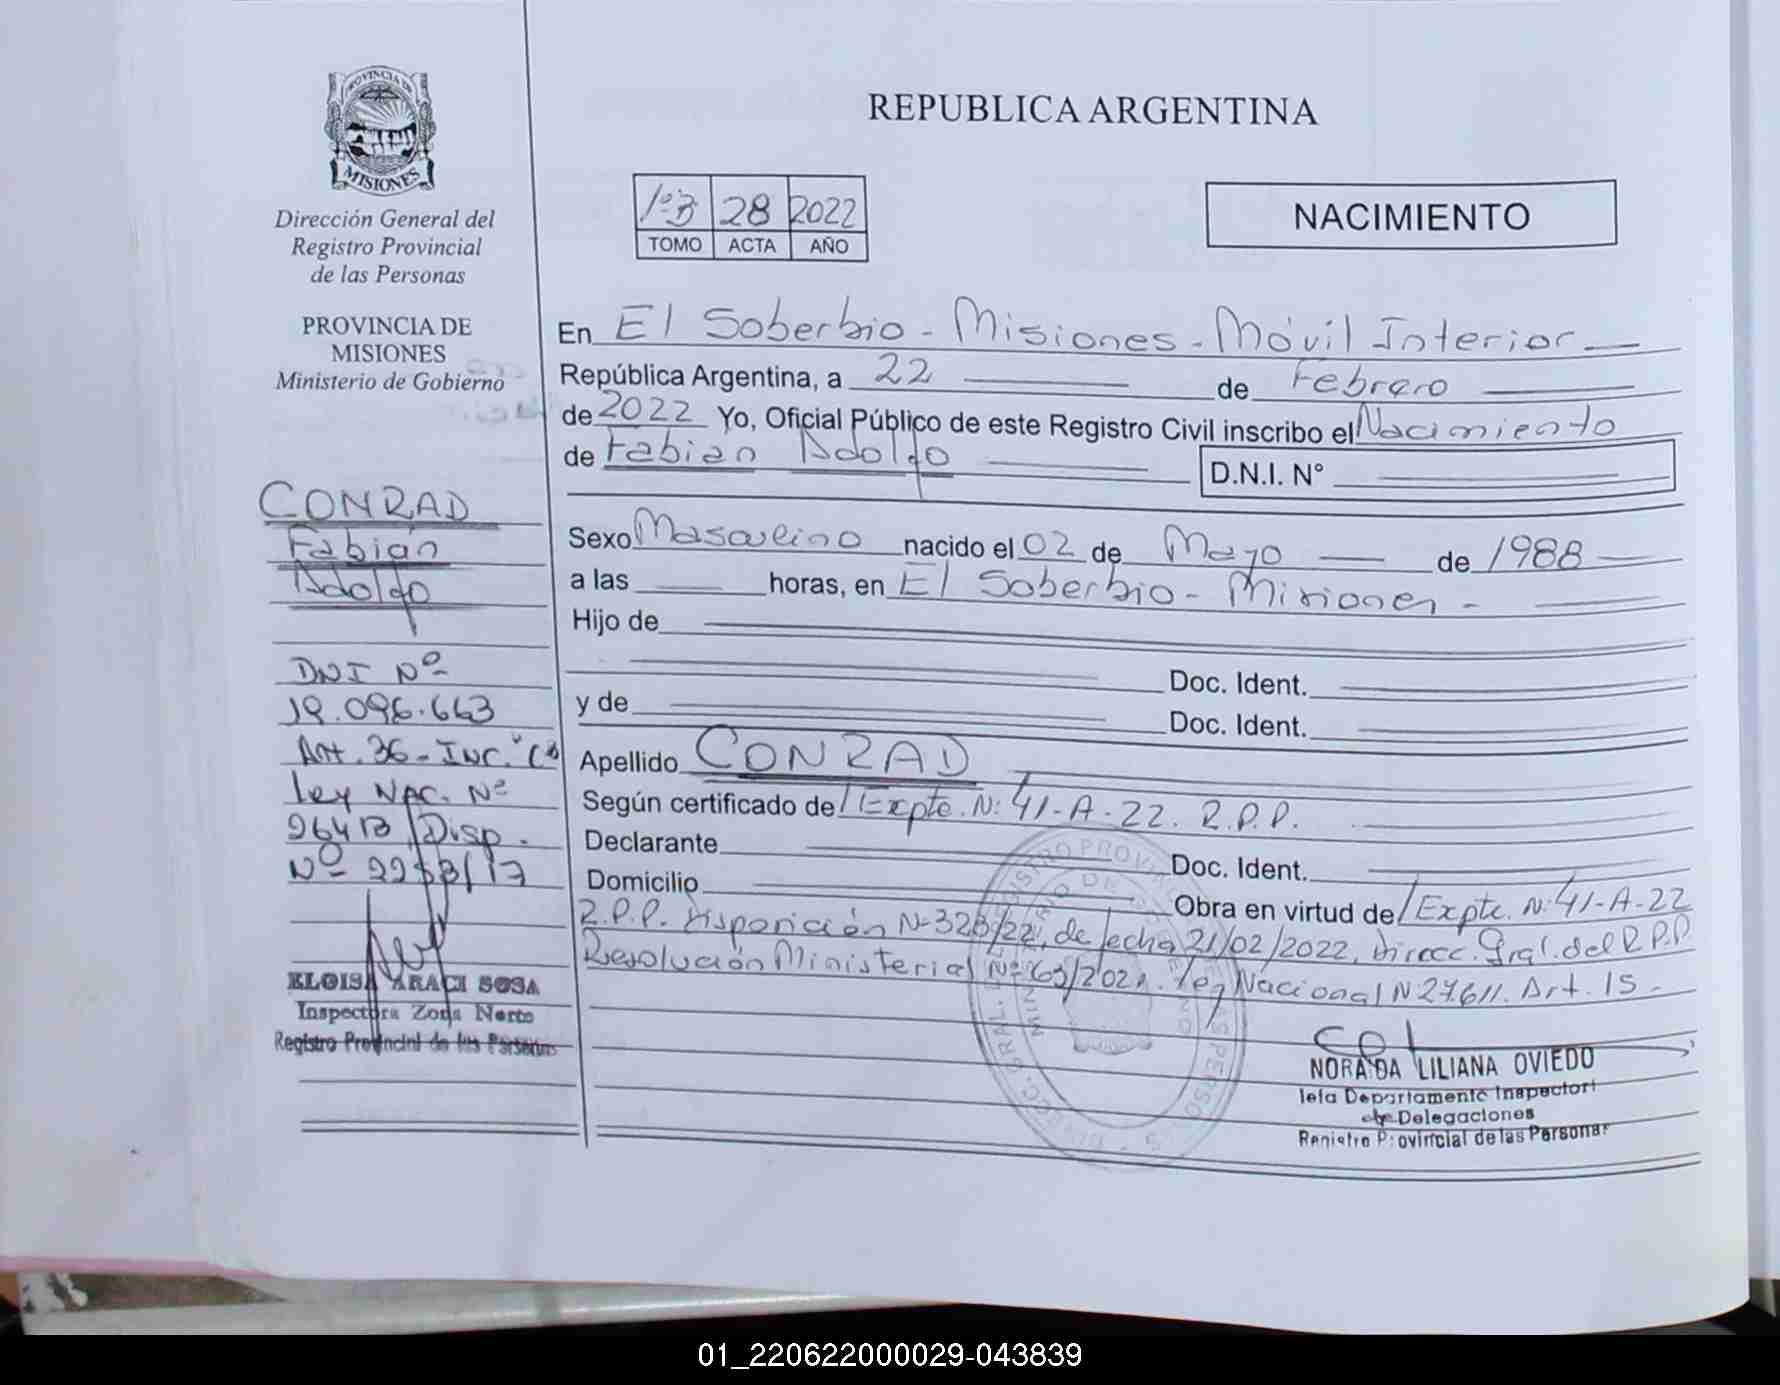 PROVINCIA DE
MISIONES
Dirección General del
Registro Provincial
de las Personas
PROVINCIA DE
MISIONES
Ministerio de Gobierno
CONRAD
Fabián
Adolfo
DNI Nº
19.096.663
Art. 36 - Inc. "C"
Ley NAC. Nº
26413 Disp.
Nº 2253/17
ELOISA ARACI SOSA
Inspectora Zona Norte
Registro Provincial de las Personas
REPUBLICA ARGENTINA
1º B 28 2022
TOMO ACTA AÑO
NACIMIENTO
En El Soberbio - Misiones - Móvil Interior
República Argentina, a 22 de Febrero
de 2022 Yo, Oficial Público de este Registro Civil inscribo el Nacimiento
de Fabian Adolfo D.N.I. N°
Sexo Masculino nacido el 02 de Mayo de 1988
a las horas, en El Soberbio - Misiones -
Hijo de
Doc. Ident.
y de Doc. Ident.
Apellido CONRAD
Según certificado de Expte. N: 41-A-22. R.P.P.
Declarante Doc. Ident.
Domicilio Obra en virtud de Expte. N: 41-A-22
R.P.P. Disposición Nº 323/22, de fecha 21/02/2022, Direcc. Gral. del R.P.P.
Resolución Ministerial Nº 63/2021. Ley Nacional N 27.611. Art. 15.
NORA DA LILIANA OVIEDO
Jefa Departamento Inspectori
de Delegaciones
Registro Provincial de las Personas
01_220622000029-043839